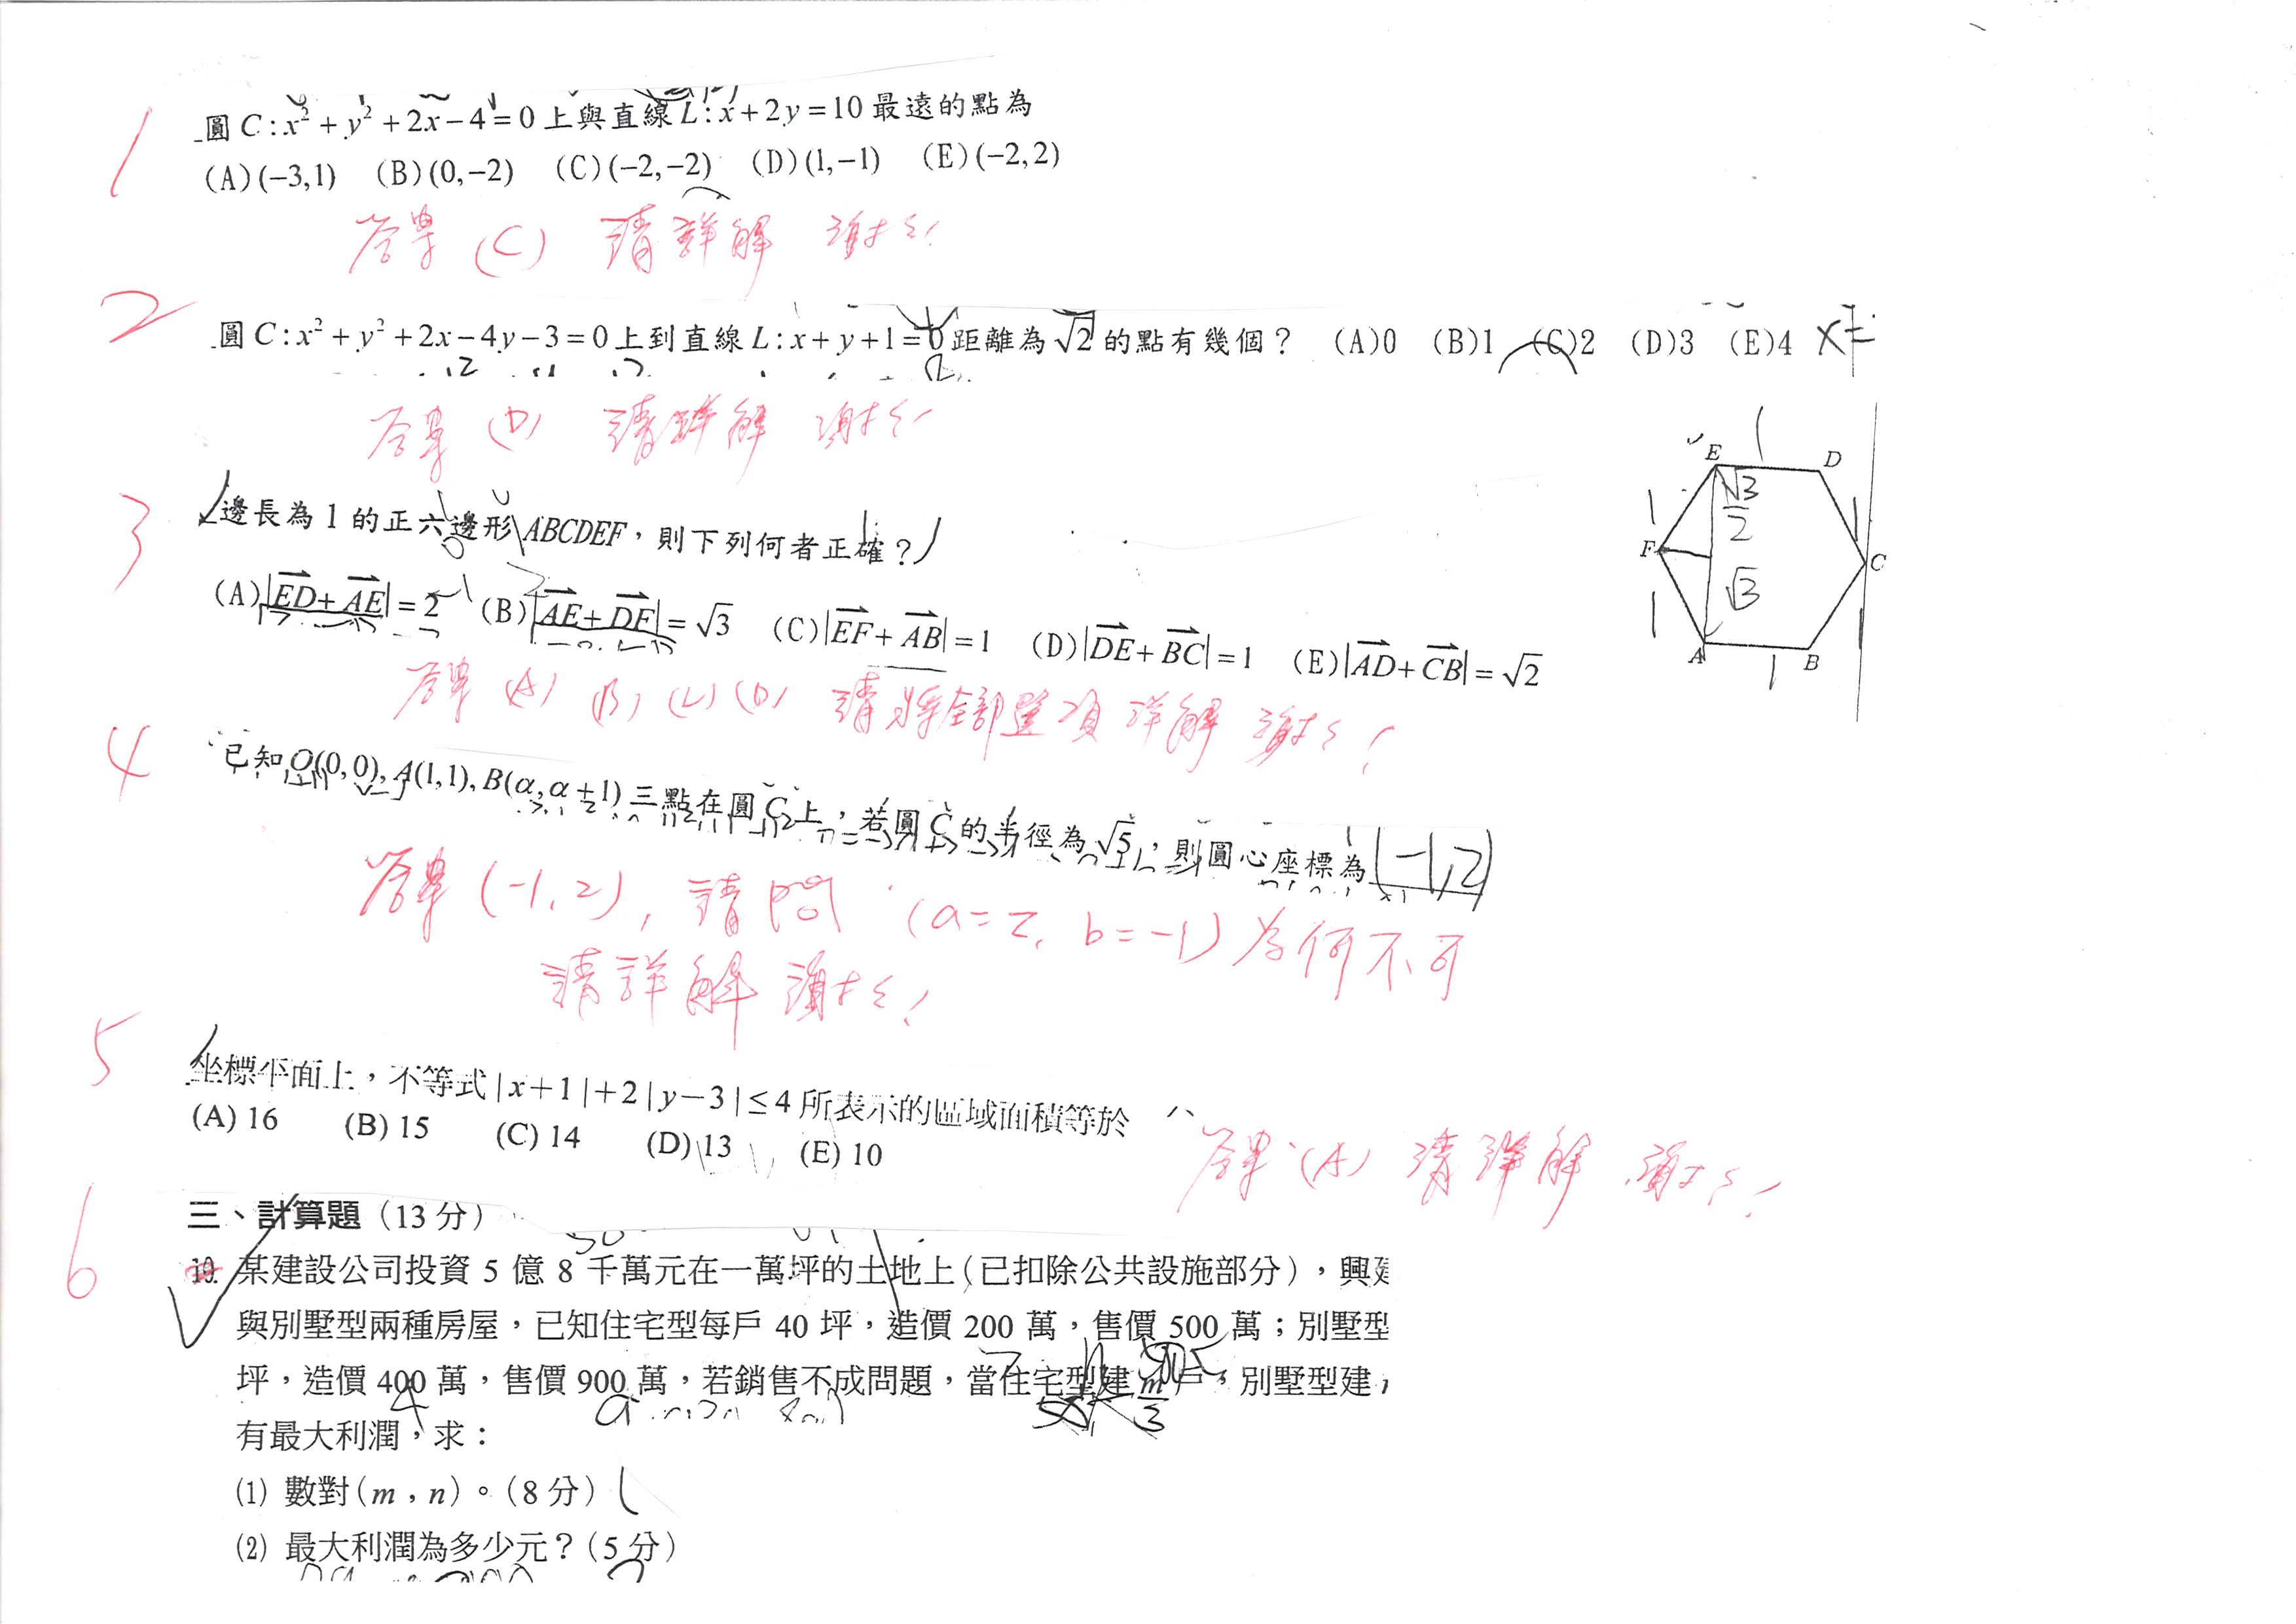 1
圓C:x²+y²+2x-4=0上與直線L:x+2y=10最遠的點為
(A)(-3,1) (B)(0,-2) (C)(-2,-2) (D)(1,-1) (E)(-2,2)
答案(C) 請詳解 謝謝!
2
圓C:x²+y²+2x-4y-3=0上到直線L:x+y+1=0距離為√2的點有幾個? (A)0 (B)1 (C)2 (D)3 (E)4
答案(D) 請詳解 謝謝!
3
邊長為1的正六邊形ABCDEF,則下列何者正確?
(A)|ED+AE|=2 (B)|AE+DE|=√3 (C)|EF+AB|=1 (D)|DE+BC|=1 (E)|AD+CB|=√2
E D
√3/2
F C
√3
A B
1
答案(A)(B)(C)(D) 請將全部選項詳解 謝謝!
4
已知O(0,0),A(1,1),B(α,α+1)三點在圓C上,若圓C的半徑為√5,則圓心座標為(-1,2)
答案(-1,2),請問(a=2, b=-1)為何不可
請詳解 謝謝!
5
坐標平面上,不等式|x+1|+2|y-3|≤4所表示的區域面積等於
(A) 16 (B) 15 (C) 14 (D) 13 (E) 10
答案(A) 請詳解 謝謝!
6
三、計算題(13分)
10. 某建設公司投資5億8千萬元在一萬坪的土地上(已扣除公共設施部分),興
與別墅型兩種房屋,已知住宅型每戶40坪,造價200萬,售價500萬;別墅型
坪,造價400萬,售價900萬,若銷售不成問題,當住宅型建m戶,別墅型建
有最大利潤,求:
(1) 數對(m,n)。(8分)
(2) 最大利潤為多少元?(5分)